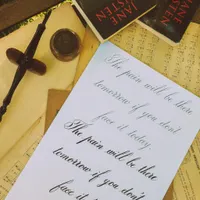 JANE
AUSTEN
JANE
AUSTEN
The pain will be there
tomorrow if you don't
face it today
The pain will be there
tomorrow if you don't
face it today